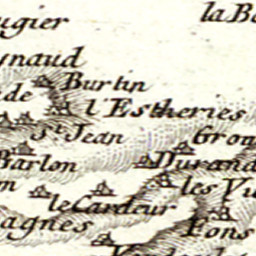 ugier
la B
ynaud
Burtin
de
l'Estheries
St Jean
Grou
Barlon
Durand
n
les Vu
le Cardeur
agnes
Fons